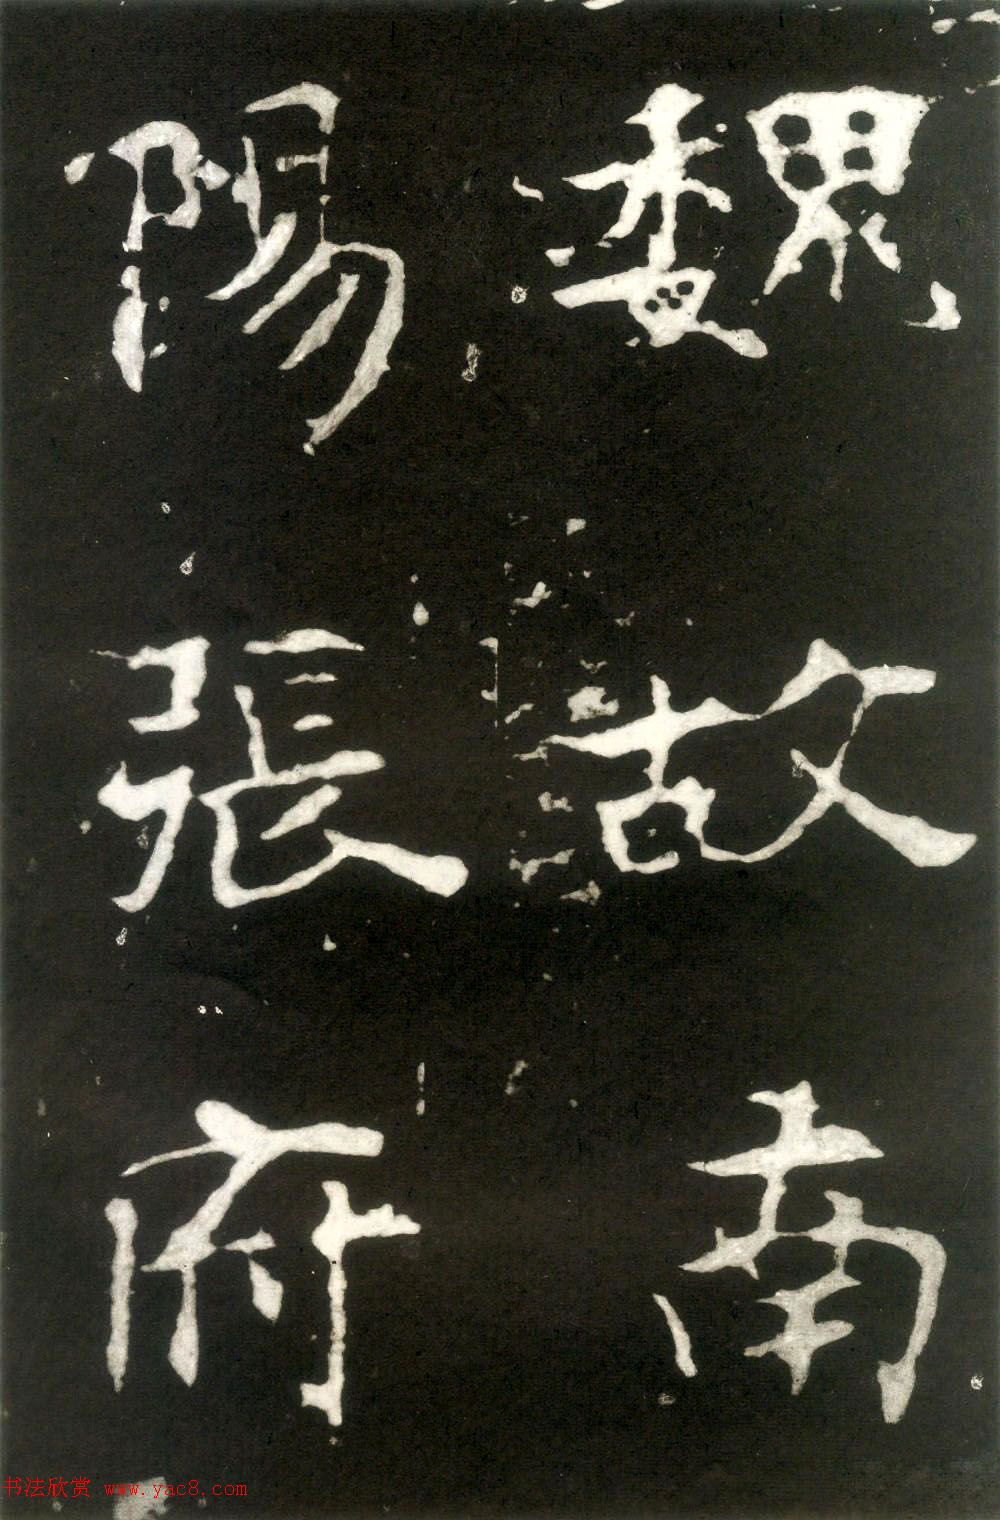 魏故南
陽張府
书法欣赏 www.yac8.com